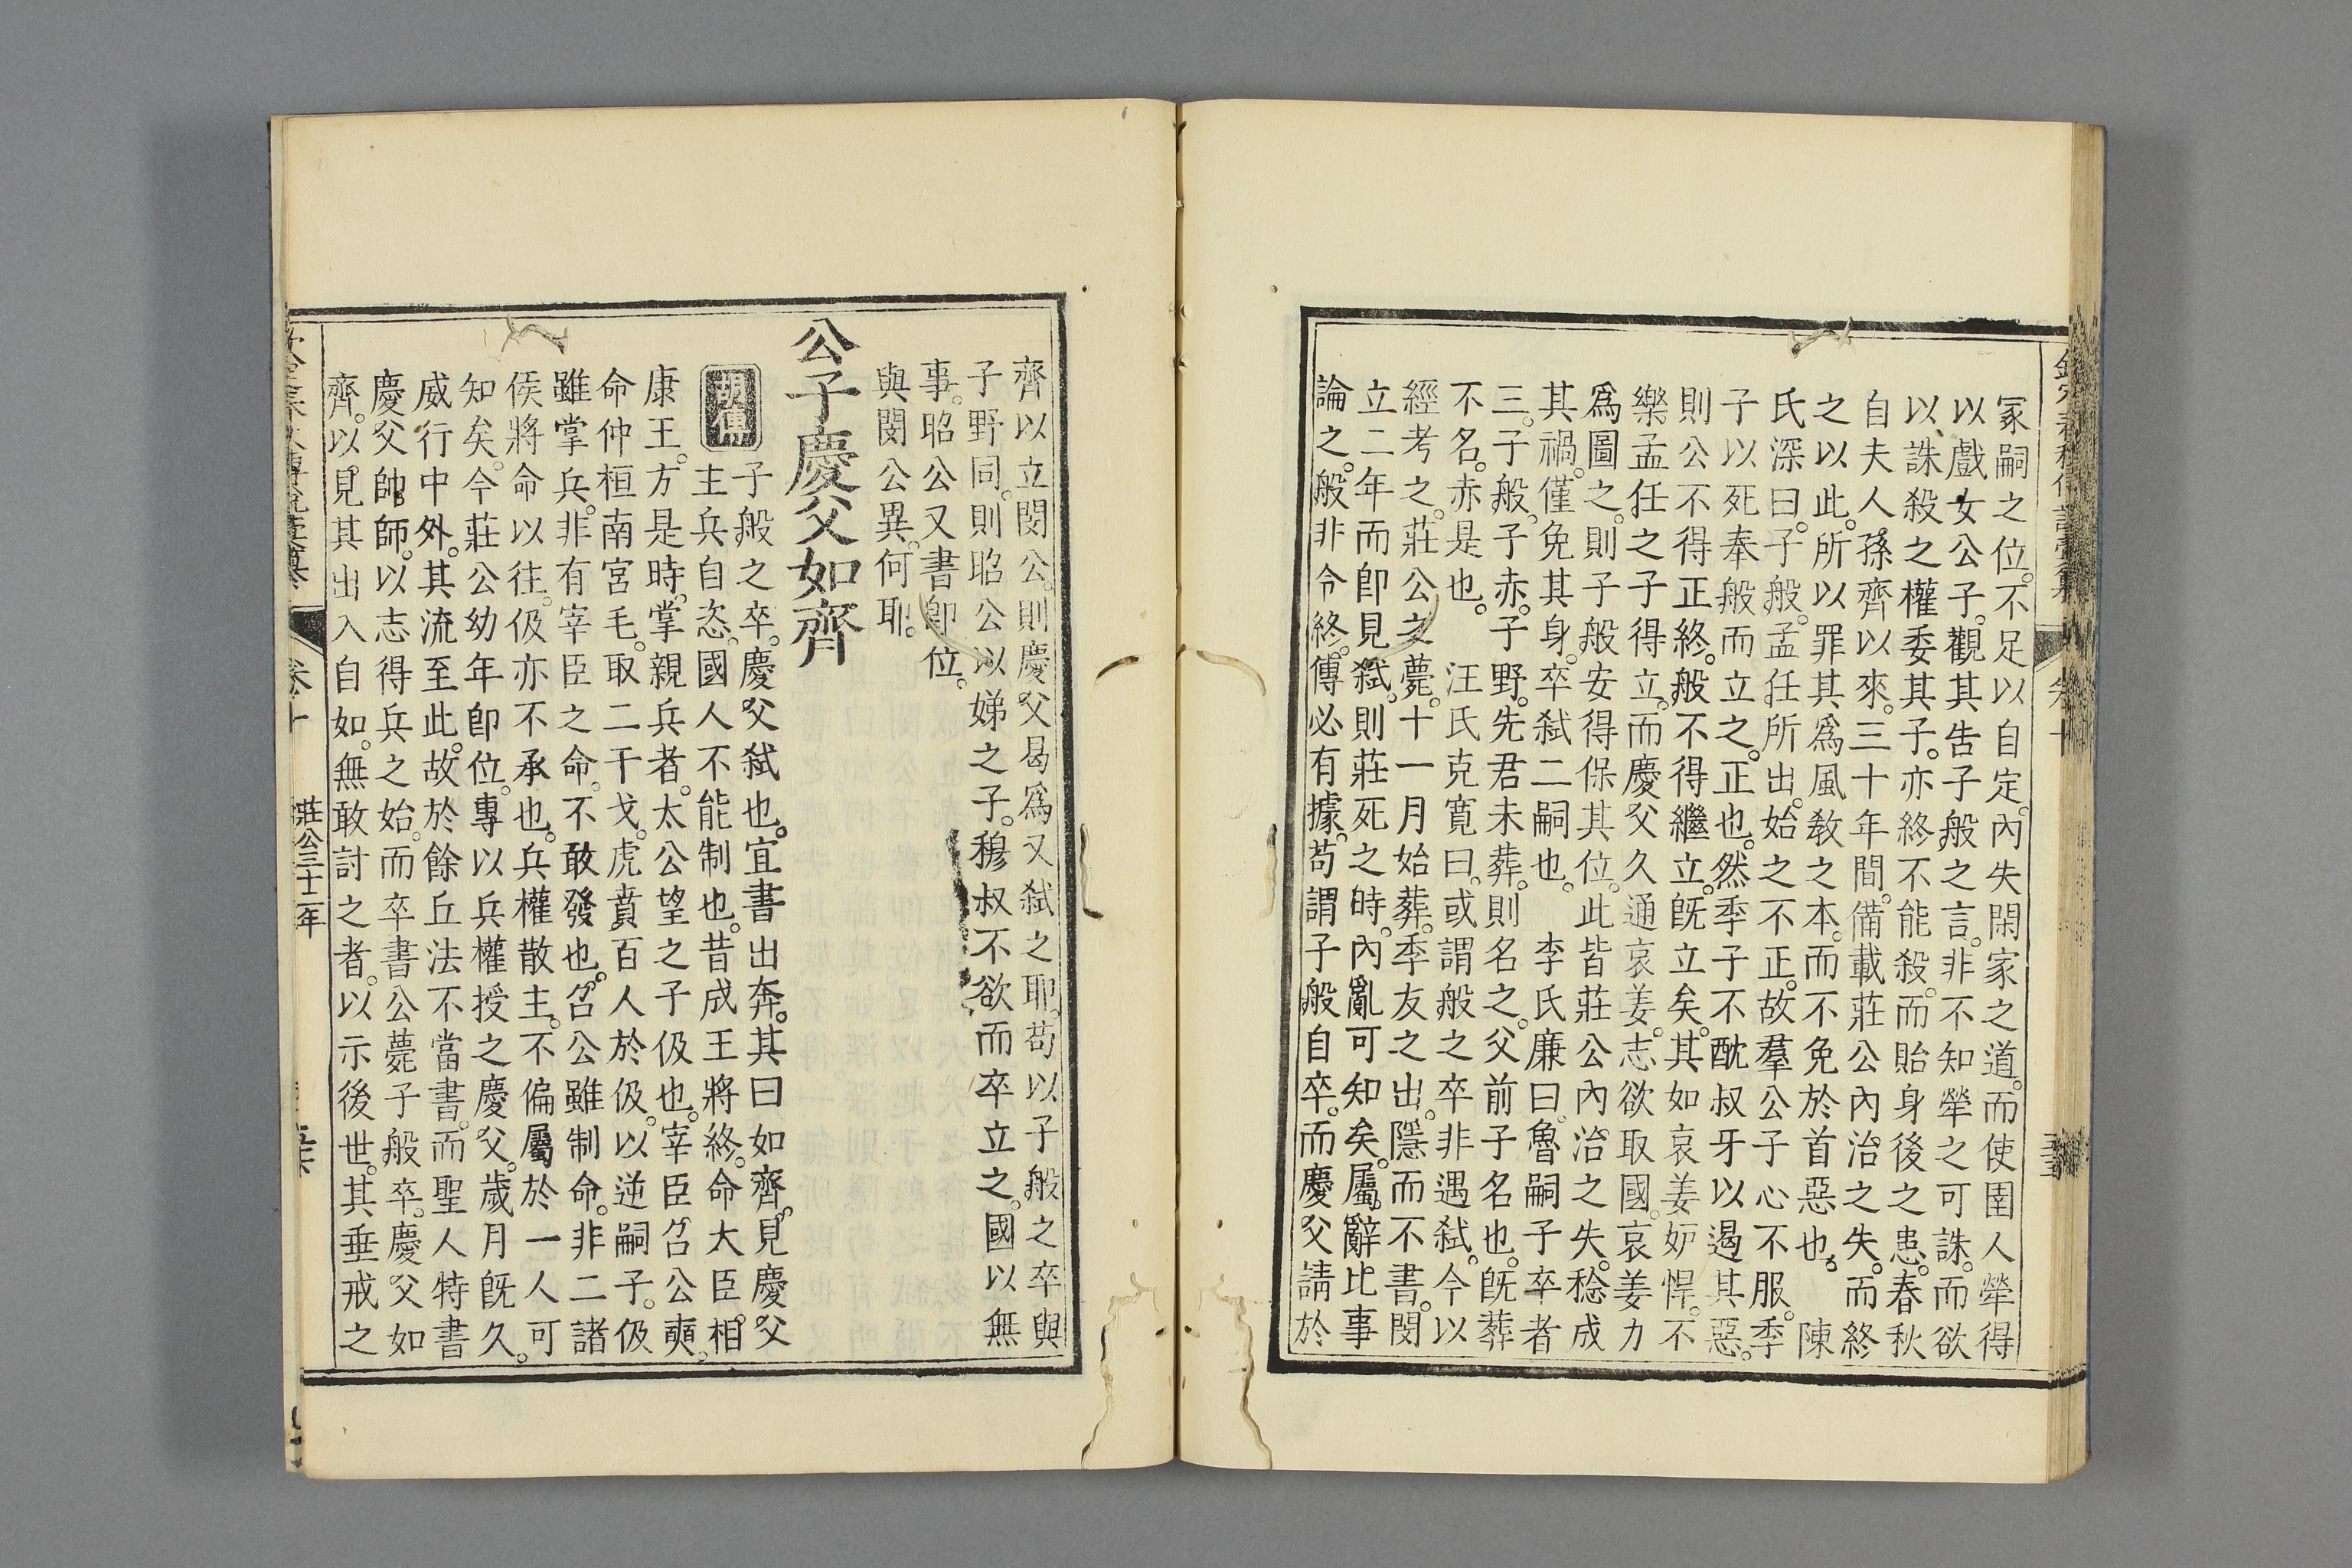 冢嗣之位不足以自定內失閑家之道而使圉人犖得
以戲女公子觀其告子般之言非不知犖之可誅而欲
以誅殺之權委其子亦終不能殺而貽身後之患春秋
自夫人孫齊以來三十年間備載莊公內治之失而終
之以此所以罪其爲風敎之本而不免於首惡也 陳
氏深曰子般孟任所出始之不正故羣公子心不服季
子以死奉般而立之正也然季子不酖叔牙以遏其惡
則公不得正終般不得繼立旣立矣其如哀姜妒悍不
樂孟任之子得立而慶父久通哀姜志欲取國哀姜力
爲圖之則子般安得保其位此皆莊公內治之失稔成
其禍僅免其身卒弑二嗣也 李氏廉曰魯嗣子卒者
三子般子赤子野先君未葬則名之父前子名也旣葬
不名赤是也 汪氏克寬曰或謂般之卒非遇弑今以
經考之莊公之薨十一月始葬季友之出隱而不書閔
立二年而卽見弑則莊死之時內亂可知矣屬辭比事
論之般非令終傳必有據苟謂子般自卒而慶父請於
齊以立閔公則慶父曷爲又弑之耶苟以子般之卒與
子野同則昭公以娣之子穆叔不欲而卒立之國以無
事昭公又書卽位
與閔公異何耶
公子慶父如齊
胡傳
子般之卒慶父弑也宜書出奔其曰如齊見慶父
主兵自恣國人不能制也昔成王將終命大臣相
康王方是時掌親兵者太公望之子伋也宰臣召公奭
命仲桓南宮毛取二干戈虎賁百人於伋以逆嗣子伋
雖掌兵非有宰臣之命不敢發也召公雖制命非二諸
侯將命以往伋亦不承也兵權散主不偏屬於一人可
知矣今莊公幼年卽位專以兵權授之慶父歲月旣久
威行中外其流至此故於餘丘法不當書而聖人特書
慶父帥師以志得兵之始而卒書公薨子般卒慶父如
齊以見其出入自如無敢討之者以示後世其垂戒之
卷十
莊公三十二年